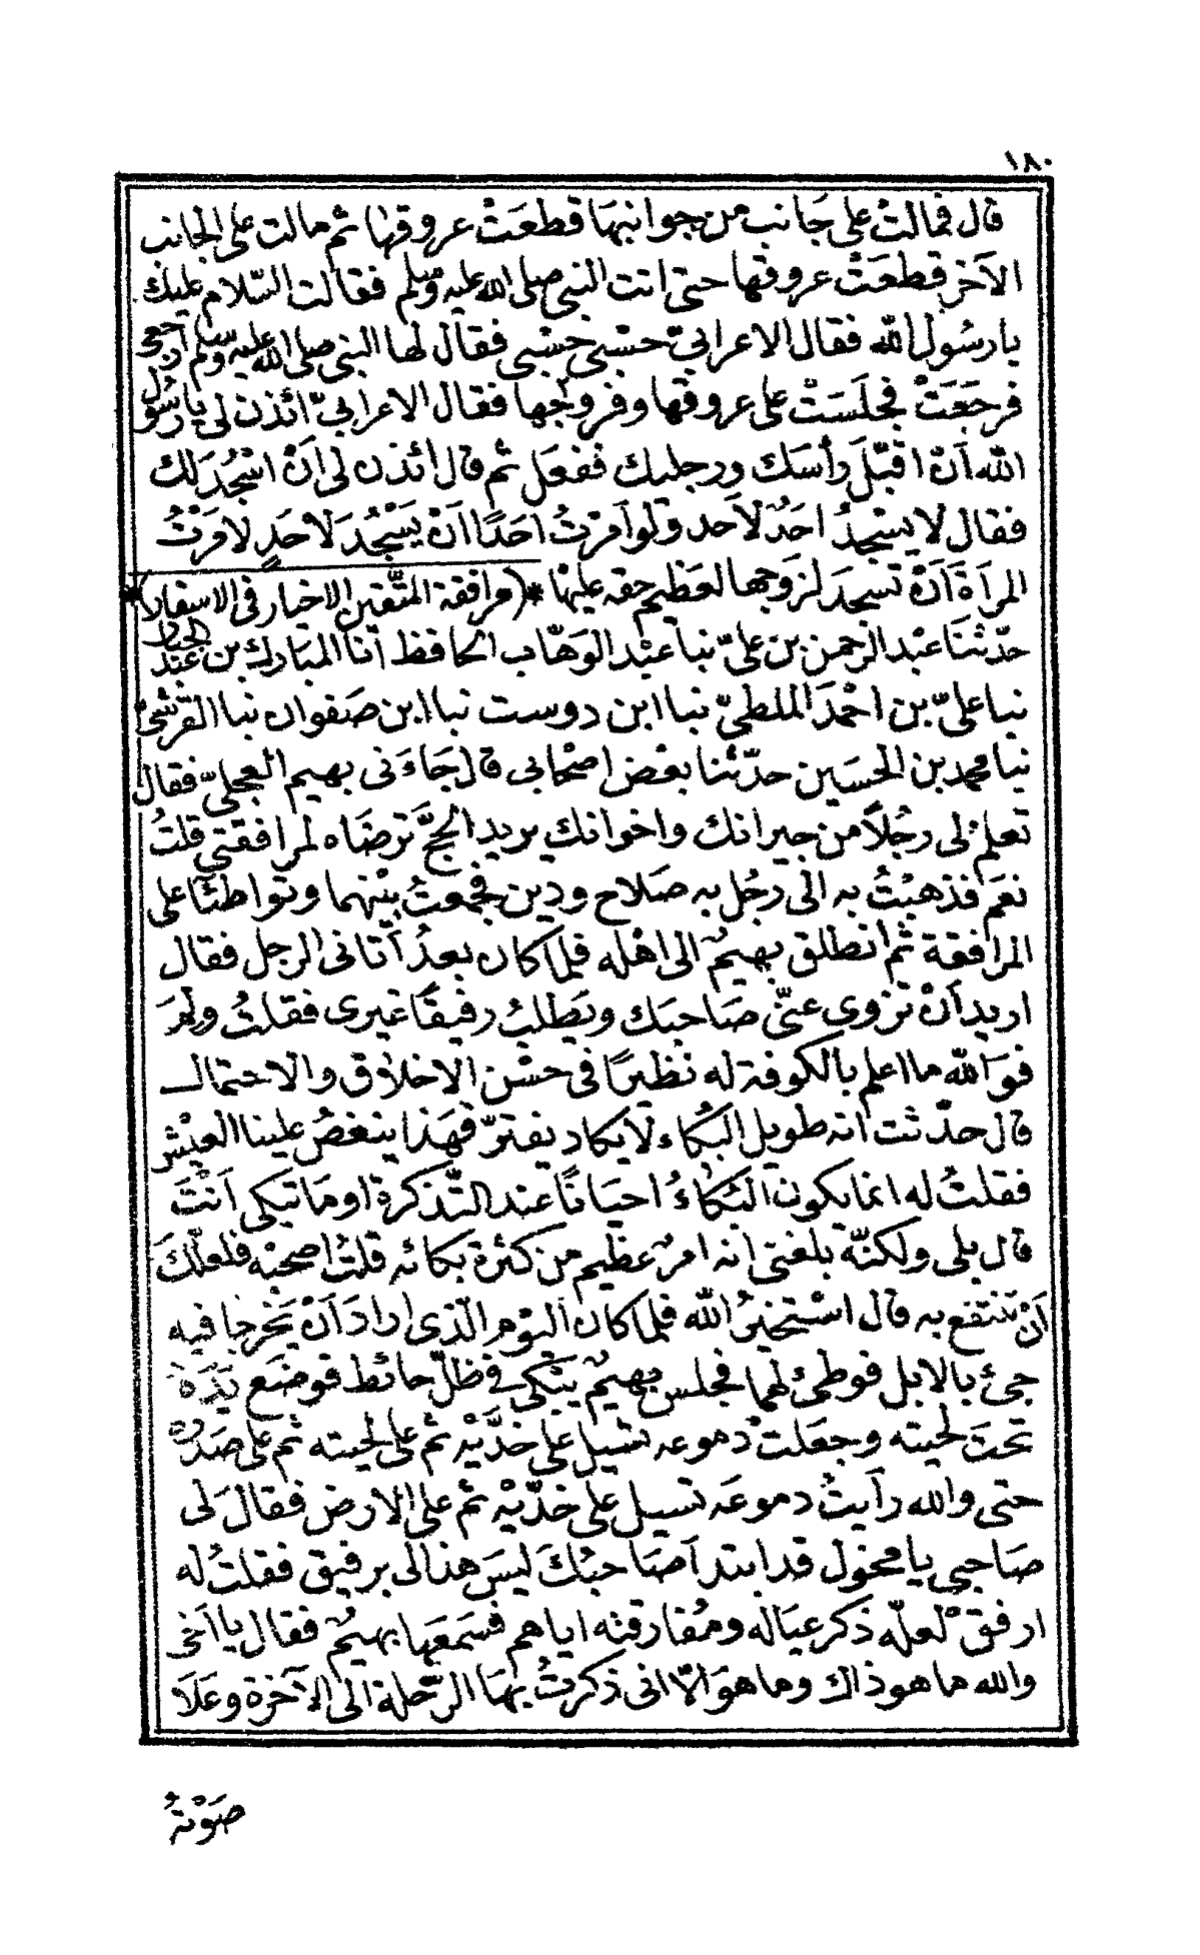 ١٨٠
قال فمالتْ على جَانب من جوانبهَا قطعَتْ عروقها ثم مالت على الجانب
الآخر قطعَتْ عروقها حتى اتت النبى صلى الله عليه وسلم فقالت السّلام عليك
يا رسُول الله فقال الاعرابيّ حسْبى حسْبى فقال لها النبى صلى الله عليه وسلم ارجعى
فرجَعَتْ فجلَسَتْ على عروقها وفروجها فقال الاعرابيّ ائذن لى يا رسُول
الله اَنْ اقبّلَ رأسَك ورجليك ففعَل ثم قال ائذن لى اَنْ اسْجُدَ لك
فقال لا يسْجدُ احَدٌ لاَحد ولو اَمرْتُ احَدًا اَنْ يَسْجُدَ لاحَدٍ لامَرْتُ
المرأةَ اَنْ تسجدَ لزوجها لعظيم حقه عليْها * (مرافقة المتّقين الاخيار فى الاسفار) *
حدّثنَا عبْد الرحمن بن علىّ نبا عبْد الوهّاب الحافظ انَا المبَارك بن عَبْد الجبار
نبا علىّ بن احْمَد الملطىّ نبا ابن دوست نبا ابن صَفوان نبا القرشىّ
نبا محمد بن الحسَين حدّثنا بعْض اصْحابى قال جَاءَنى بهيم العجلىّ فقال
تعلم لى رجُلاً من جيرانك واخوانك يريد الحجَّ ترضَاه لمرافقتى قلتُ
نعَم فذهبْتُ به الى رجُل به صَلاح ودين فجمعتُ بيْنهما وتواطئا على
المرافقة ثم انطلق بهيمٌ الى اهْله فلما كان بعدُ اَتانى الرجل فقال
اريد اَنْ تزوى عنّى صَاحبَك ويَطلبُ رفيقًا غيرى فقلتُ ولمَ
فوَالله ما اعلم بالكوفة له نظيرًا فى حسْن الاخلاق والاحتمال
قال حدّثت انه طويل البُكاء لا يكاد يفترّ فهَذا ينغصُ علينا العيْش
فقلتُ له انما يكون البُكاءُ احيَانًا عند التّذكرة اومَا تبكى اَنْتَ
قال بلى ولكنّه بلغنى انه امرٌ عظيم من كثرة بكائه قلتُ اصحبْه فلعلّكَ
اَنْ تنتفع به قال اسْتخيرُ الله فلما كان اليَوم الّذى ارادَ اَنْ يَخرجا فيه
جئ بالابل فوطئ لهما فجلس بهيمٌ يَبْكى فى ظلّ حائط فوضَع يَدَهُ
تحتَ لحيته وجعَلتْ دموعه تسْيل على خدّيْه ثم على لحيته ثم على صَدره
حتى والله رأيتُ دموعَه تسيل على خدّيْه ثم على الارض فقالَ لى
صَاحبى يا مخول قد ابتدأ صَاحبُكَ ليسَ هذا لى برفيق فقلتُ له
ارفقْ لعلّه ذكر عيَاله ومُفارقته اياهم فسَمعَها بهيمٌ فقال يا اَخى
والله ما هو ذاك وما هوَ الاّ انى ذكرتُ بهَا الرّحلة الى الآخرة وعَلاَ
صَوْتهُ